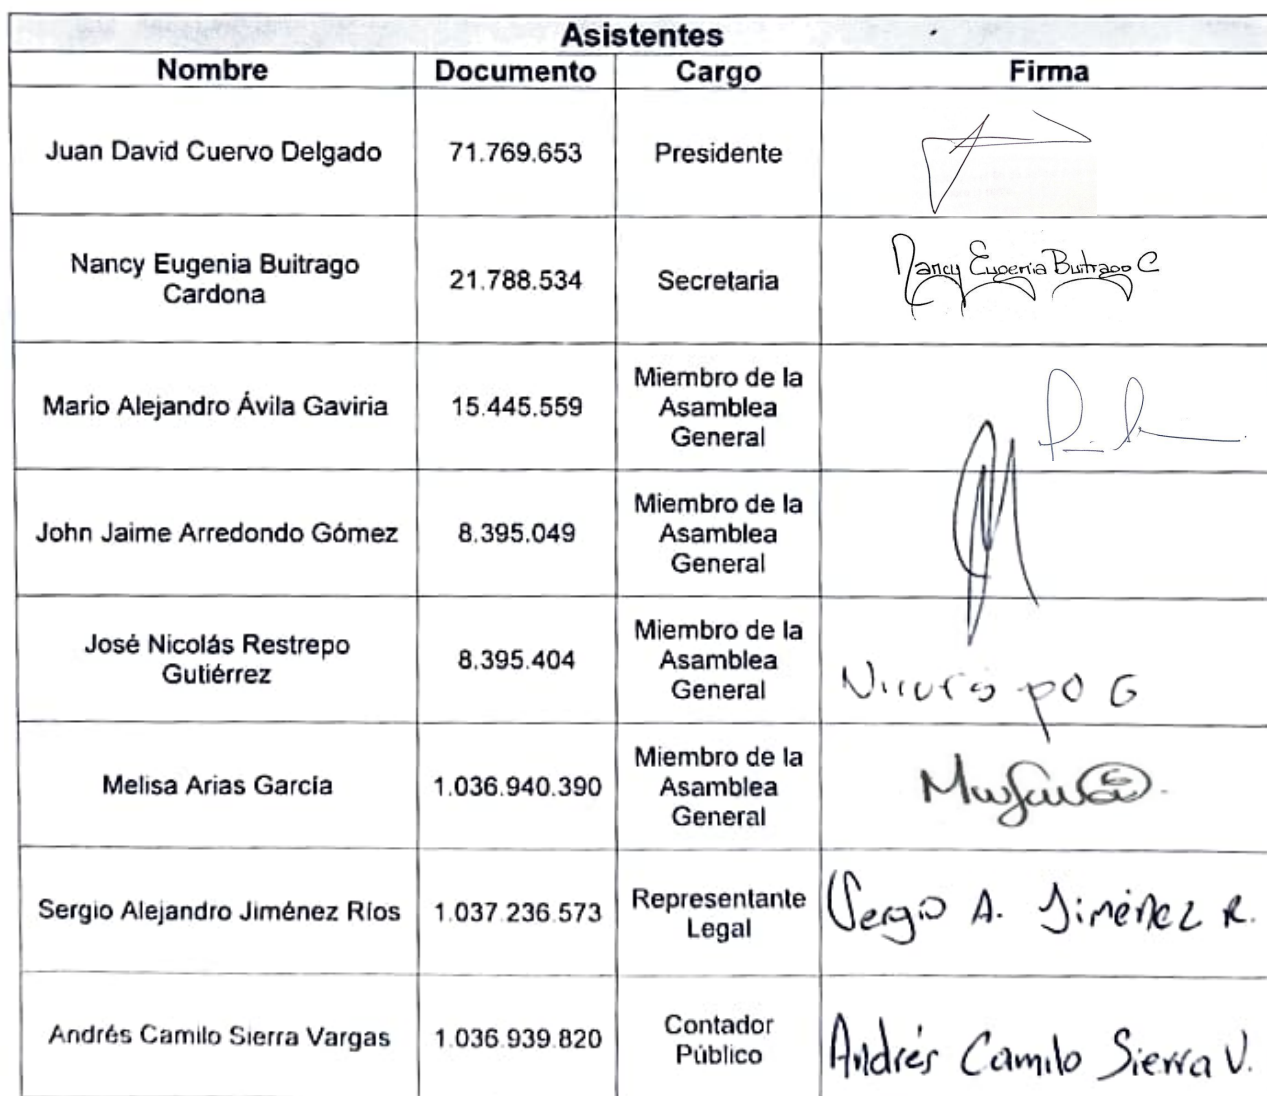 Asistentes
Nombre Documento Cargo Firma
Juan David Cuervo Delgado 71.769.653 Presidente
Nancy Eugenia Buitrago
Cardona 21.788.534 Secretaria Nancy Eugenia Buitrago C
Mario Alejandro Ávila Gaviria 15.445.559 Miembro de la
Asamblea
General
John Jaime Arredondo Gómez 8.395.049 Miembro de la
Asamblea
General
José Nicolás Restrepo
Gutiérrez 8.395.404 Miembro de la
Asamblea
General
Melisa Arias García 1.036.940.390 Miembro de la
Asamblea
General
Sergio Alejandro Jiménez Ríos 1.037.236.573 Representante
Legal Sergio A. Jiménez R.
Andrés Camilo Sierra Vargas 1.036.939.820 Contador
Público Andrés Camilo Sierra V.